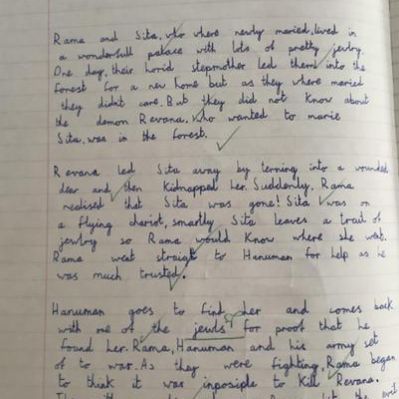 Rama and Sita, who where newly maried, lived in
a wonderfull palace with lots of pretty jewlry.
One day, their horid stepmother led them into the
forest for a new home but as they where maried
they didnt care. But they did not know about
the demon Revana, who wanted to marie
Sita, was in the forest.
Revana led Sita away by terning into a wounded
dear and then kidnapped her. Suddenly, Rama
realised that Sita was gone! Sita was on
a flying chariot, smartly Sita leaves a trail of
jewlry so Rama would know where she went.
Rama went straigt to Hanuman for help as he
was much trusted.
Hanuman goes to find her and comes back
with one of the jewls for proof that he
found her. Rama, Hanuman and his army set
of to war. As they were fighting, Rama began
to think it was inposiple to kill Revana.
the evil